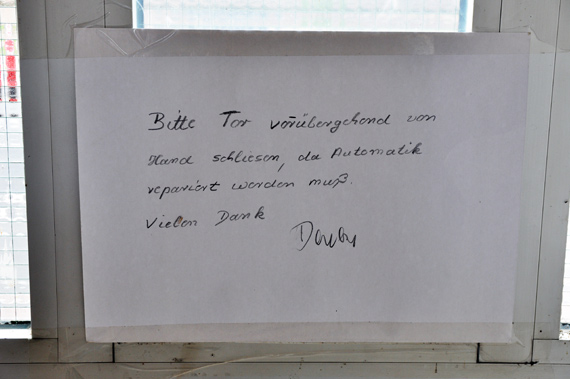 Bitte Tor vorübergehend von
Hand schliesen, da Automatik
repariert werden muß.
Vielen Dank